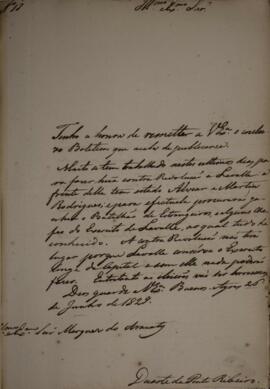 Illmo e Exmo Senr
Tenho a honra de remetter a V. Exa o
no Boletim que acaba de publicarse.
Muito se tem trabalhado nestes ultimos dias pa
ra fazer huma contra Revolução a Lavalle. a
frente della tem estado Alvear e Martin
Rodrigues, e para efeitual-a procurarão ga-
nhar o Batalhão de Estrangeiros, e alguns Che-
fes do Exercito de Lavalle, ao qual tudo he
conhecido. A contra Revolução não tem
lugar porque Lavalle conserva o Exercito
longe da Capital e sem elle nada podem
fazer. Entretanto as eleições
Deos guarde a V. Exa Buenos-Ayres 26
de Junho de 1829.
Illmo e Exmo Senr Marquez do Aracaty
Duarte da Ponte Ribeiro